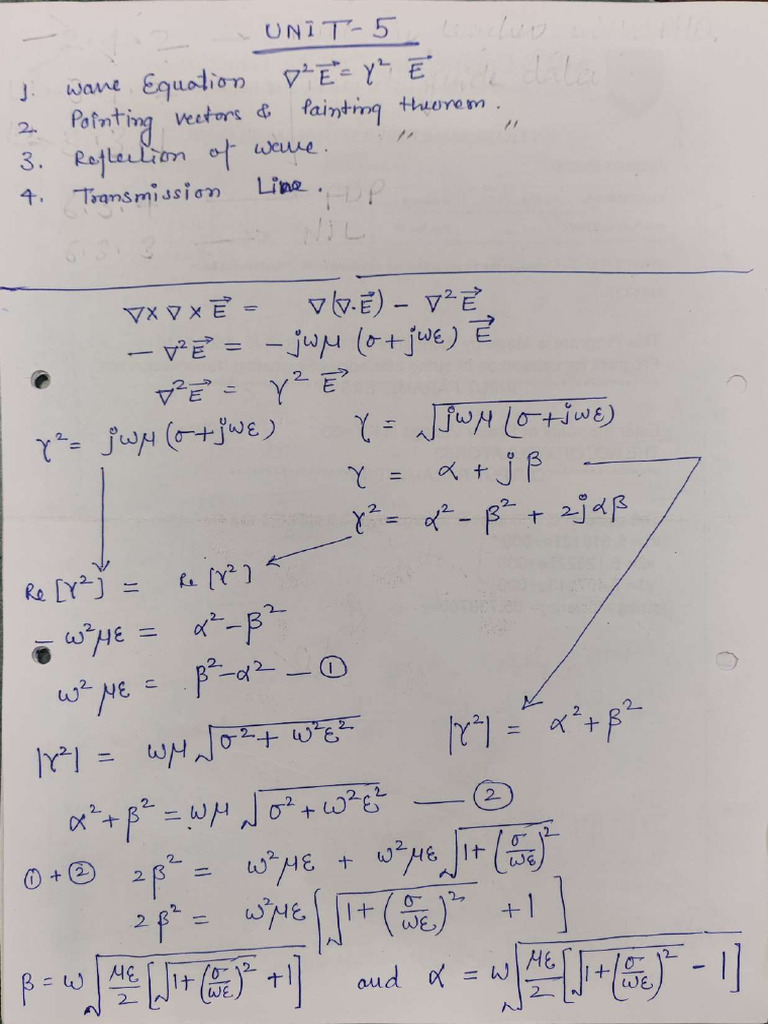 UNIT-5
1. Wave Equation ∇²E⃗ = γ² E⃗
2. Pointing vectors & Painting theorem.
3. Reflection of wave. " "
4. Transmission Line.
∇×∇×E⃗ = ∇(∇.E⃗) - ∇²E⃗
-∇²E⃗ = -jωμ (σ+jωε) E⃗
∇²E⃗ = γ² E⃗
γ² = jωμ (σ+jωε) γ = √(jωμ (σ+jωε))
γ = α + jβ
γ² = α² - β² + 2jαβ
Re [γ²] = Re [γ²]
-ω²με = α²-β²
ω²με = β²-α² — ①
|γ²| = ωμ √(σ²+ω²ε²) |γ²| = α²+β²
α²+β² = ωμ √(σ²+ω²ε²) — ②
①+② 2β² = ω²με + ω²με √(1+(σ/ωε)²)
2β² = ω²με [√(1+(σ/ωε)²) +1]
β = ω √(με/2 [√(1+(σ/ωε)²) +1]) and α = ω √(με/2 [√(1+(σ/ωε)²) -1])